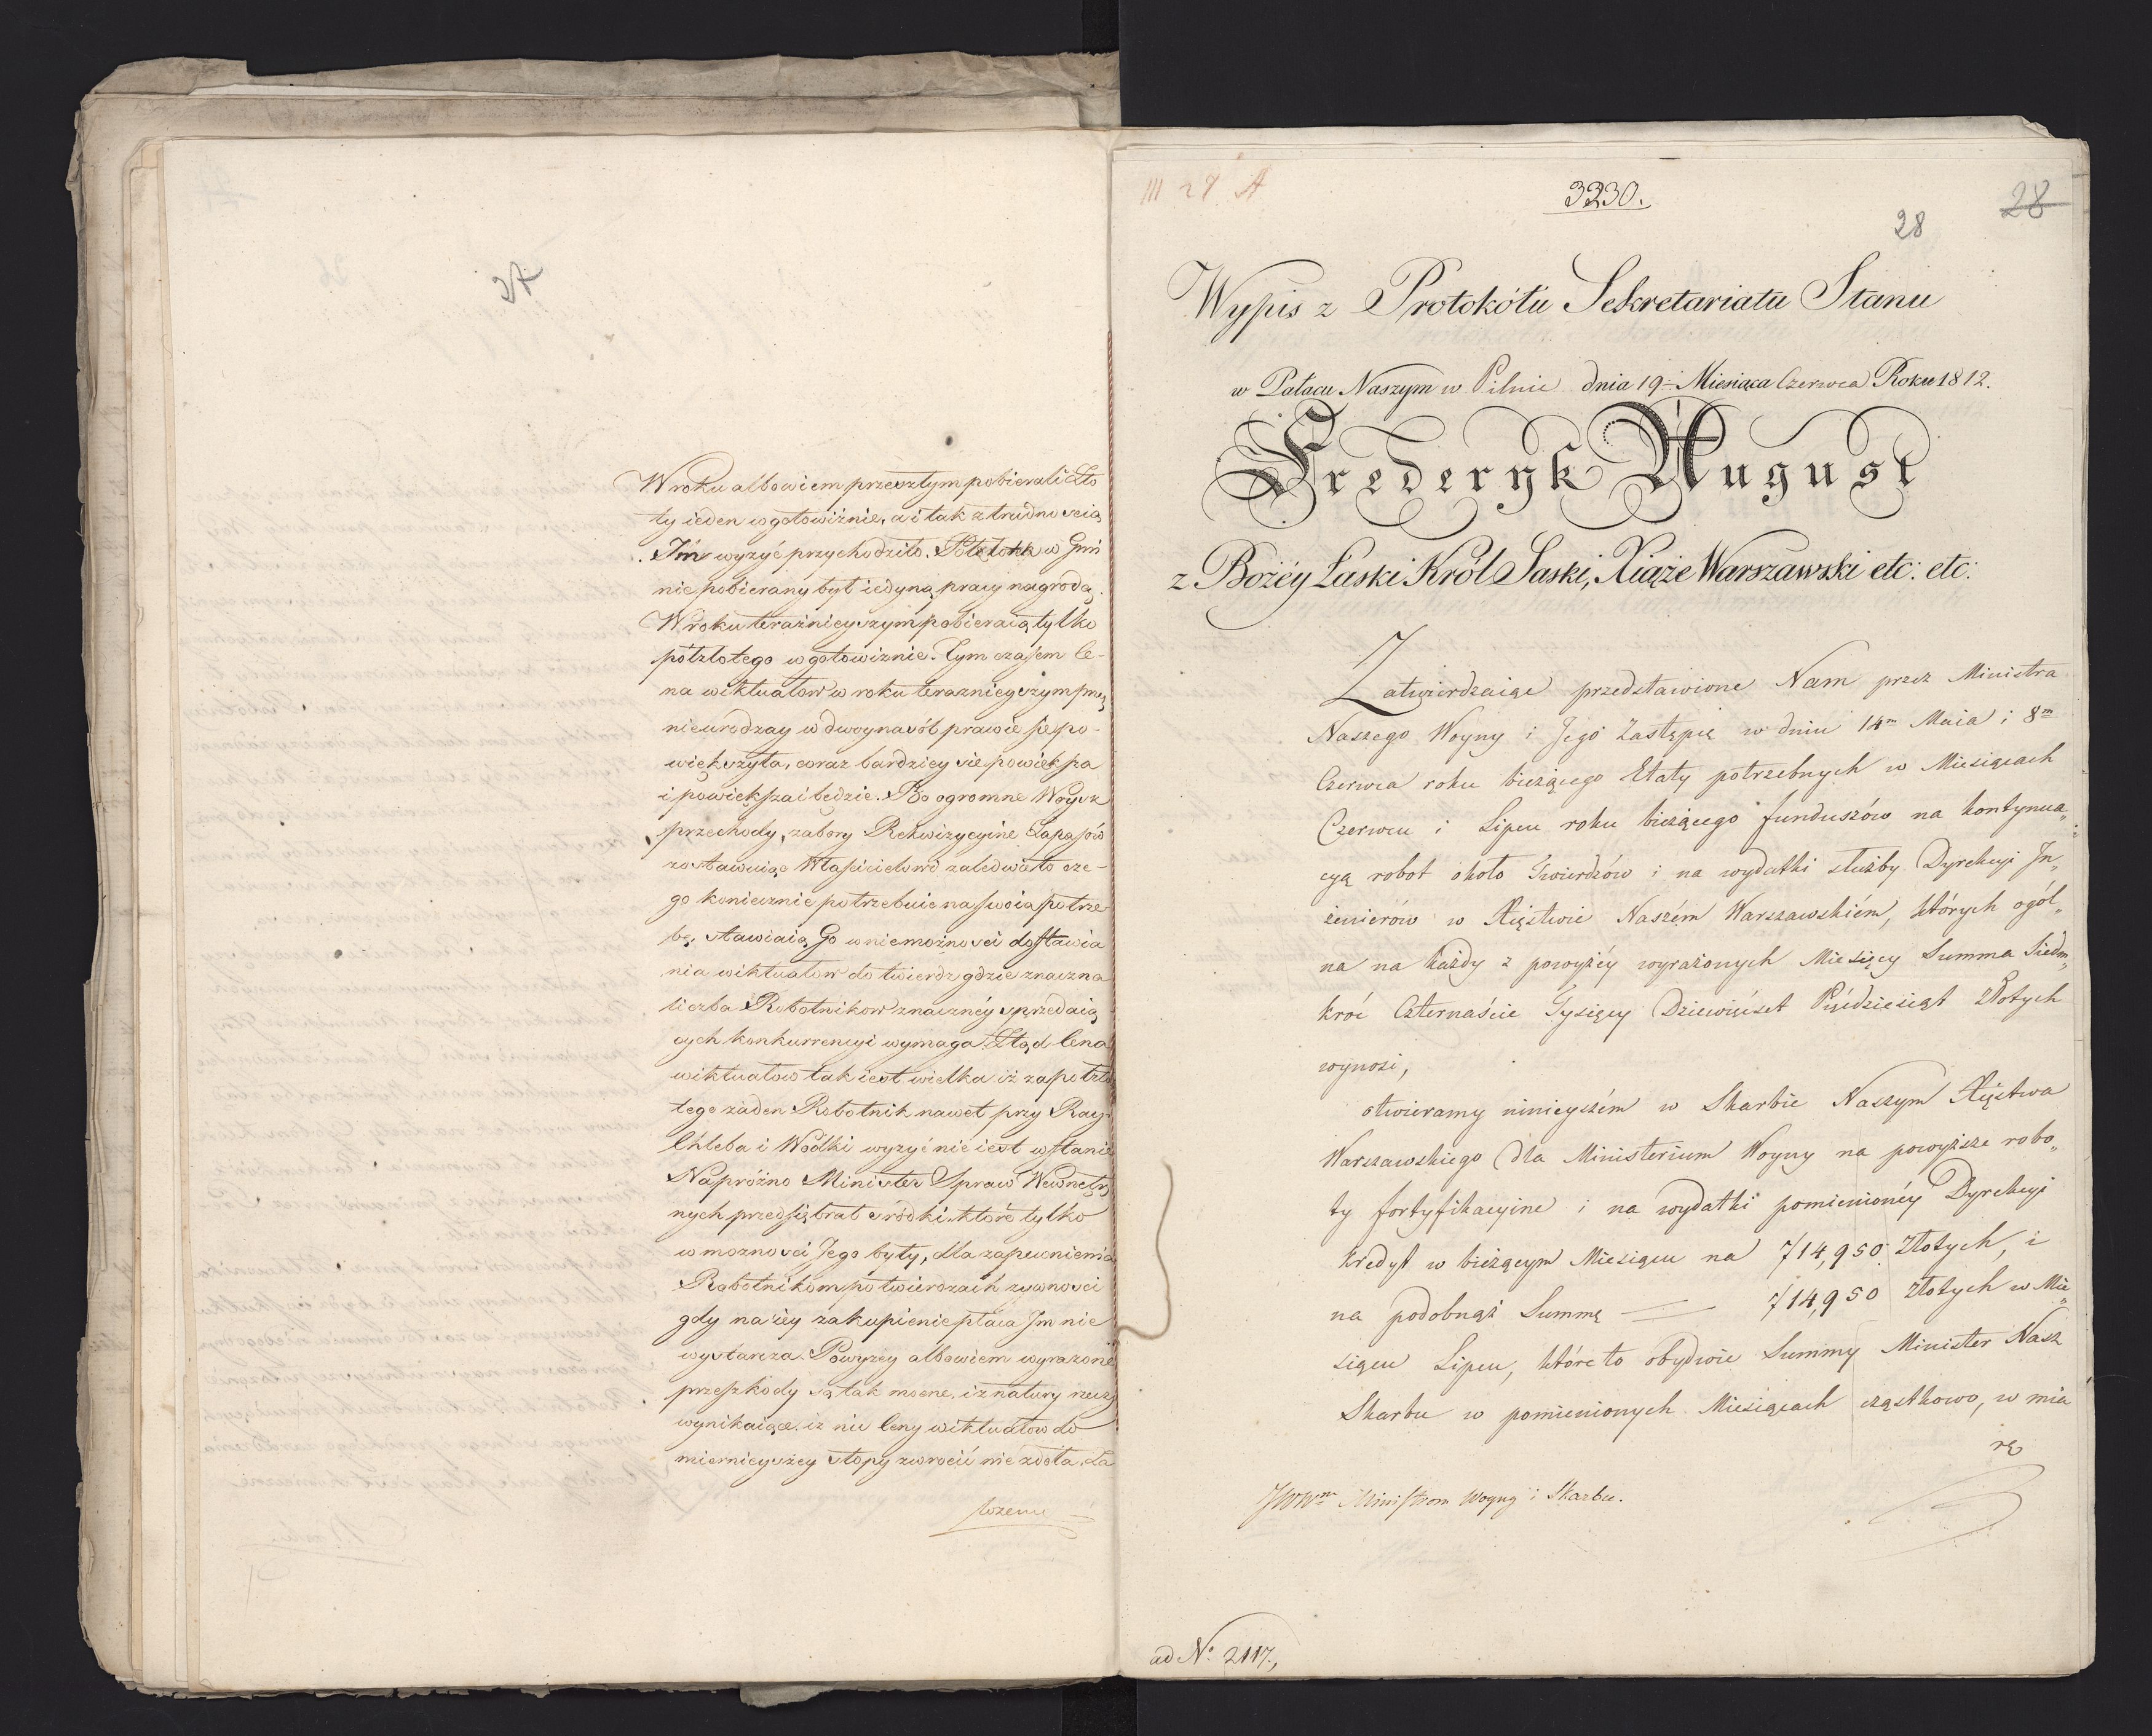 27
W roku albowiem przeszłym pobierali Zło
ty ieden w gotowiźnie, a i tak z trudnością
Im wyżyć przychodziło.
nie pobierany był iedyną pracy nagrodą.
W roku teraźnieyszym pobieraią tylko
półzłotego w gotowiźnie. Tym czasem Ce-
na wiktuałow w roku teraznieyszym przez
nieurodzay w dwoynasób prawie się po-
większyła, coraz bardziey się powiększa
i powiększać będzie. Bo ogromne Woysk
przechody, zabory Rekwizycyine Zapasów
zostawuiąc Właścicielowi zaledwie to cze-
go koniecznie potrzebuie na swoia potrze
bę, stawiaią Go w niemożności dostawia
nia wiktuałow do twierdz gdzie znaczna
liczba Robotnikow znaczney sprzedaią
cych konkurrencyi wymaga. Ztąd Cena
wiktuałow tak iest wielka iż za półzło
tego żaden Robotnik nawet przy Racyi
Chleba i Wódki wyżyć nie iest w stanie
Napróżno Minister Spraw Wewnętrz
nych przedsiębrał srodki które tylko
w możności Jego były, dla zapewnienia
Robotnikom po twierdzach żywności
gdy na iey zakupienie płaca Im nie
wystarcza. Powyżey albowiem wyrażone
przeszkody są tak mocne, iż z natury rzeczy
wynikaiące, iż nie Ceny wiktuałow do
miernieyszey stopy zwrócić nie zdoła. Za
wszemu
III 28 A
3230.
28
28
Wypis z Protokółu Sekretariatu Stanu
w Pałacu Naszym w Pilnic dnia 19. Miesiąca Czerwca Roku 1812.
Frederyk August
z Bożéy Łaski Król Saski, Xiąże Warszawski etc: etc:
Zatwierdzaiąc przedstawione Nam przez Ministra
Naszego Woyny i Jego Zastępcę w dniu 14m Maia i 8m
Czerwca roku bieżącego Etaty potrzebnych w Miesiącach
Czerwcu i Lipcu roku bieżącego funduszów na kontynua„
cyą robot około Twierdzów i na wydatki służby Dyrekcyi In„
żenierów w Xięstwie Naszém Warszawskiém, których ogól„
na na każdy z powyżéy wyrażonych Miesięcy Summa Siedm„
kroć Czternaście Tysięcy Dziewięćset Pięćdziesiąt Złotych
wynosi,
otwieramy ninieyszém w Skarbie Naszym Xięstwa
Warszawskiego dla Ministerium Woyny na powyższe robo„
ty fortyfikacyine i na wydatki pomienionéy Dyrekcyi
kredyt w bieżącym Miesiącu na 714,950 Złotych, i
na podobnąż Summę 714,950 Złotych w Mie„
siącu Lipcu, które to obydwie Summy Minister Nasz
Skarbu w pomienionych Miesiącach cząstkowo, w mia
rę
JWWm Ministrom Woyny i Skarbu.
ad No. 2117.,